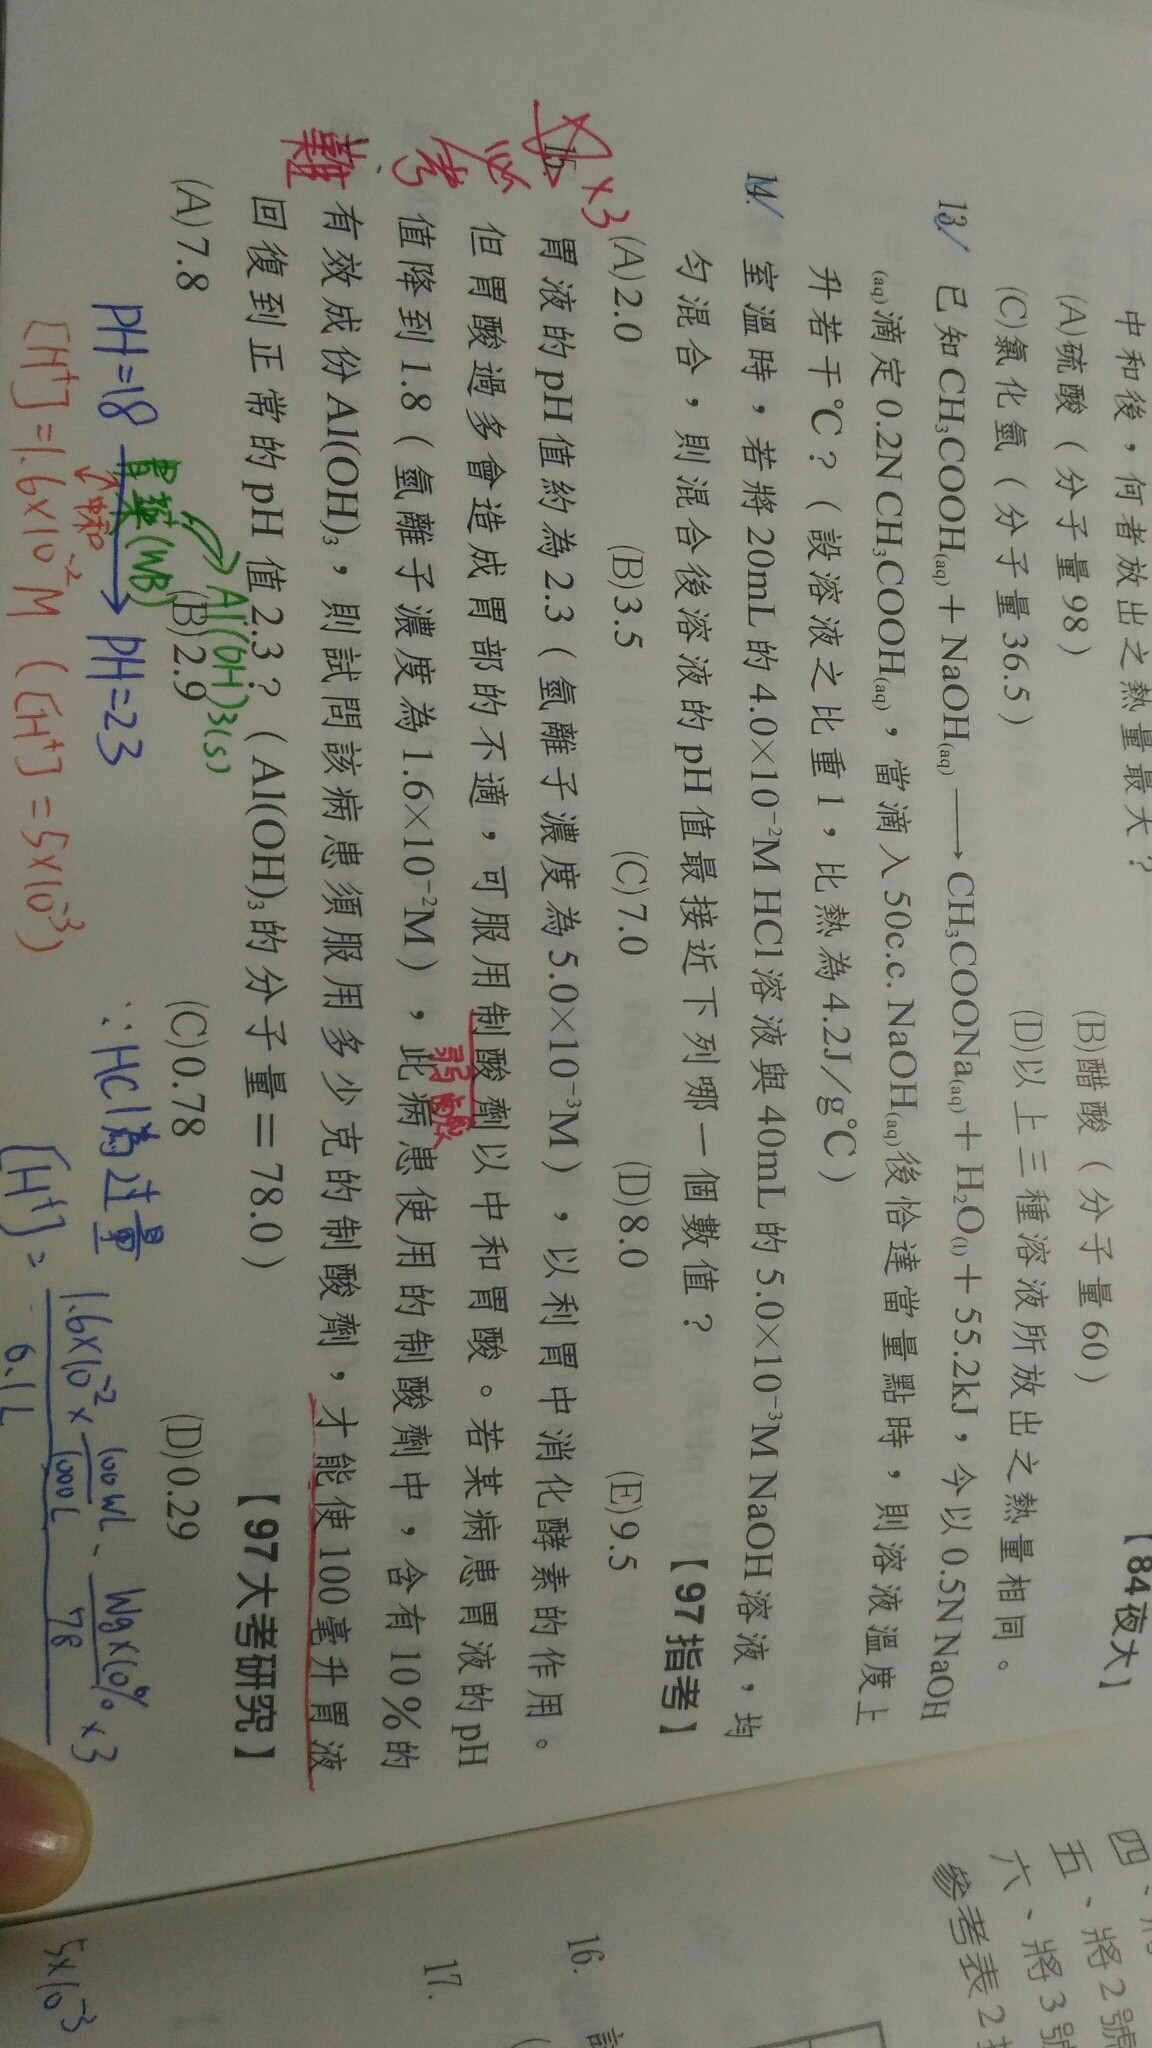 中和後，何者放出之熱量最大？
【84夜大】
(A)硫酸（分子量98）
(B)醋酸（分子量60）
(C)氯化氫（分子量36.5）
(D)以上三種溶液所放出之熱量相同。
13. 已知CH₃COOH(aq)＋NaOH(aq)⟶CH₃COONa(aq)＋H₂O(l)＋55.2kJ，今以0.5N NaOH
(aq)滴定0.2N CH₃COOH(aq)，當滴入50c.c. NaOH(aq)後恰達當量點時，則溶液溫度上
升若干℃？（設溶液之比重1，比熱為4.2J/g℃）
14. 室溫時，若將20mL的4.0×10⁻²M HCl溶液與40mL的5.0×10⁻³M NaOH溶液，均
勻混合，則混合後溶液的pH值最接近下列哪一個數值？
【97指考】
(A)2.0
(B)3.5
(C)7.0
(D)8.0
(E)9.5
×3
必
考
難
15. 胃液的pH值約為2.3（氫離子濃度為5.0×10⁻³M），以利胃中消化酵素的作用。
但胃酸過多會造成胃部的不適，可服用制酸劑以中和胃酸。若某病患胃液的pH
弱鹼
值降到1.8（氫離子濃度為1.6×10⁻²M），此病患使用的制酸劑中，含有10%的
有效成份Al(OH)₃，則試問該病患須服用多少克的制酸劑，才能使100毫升胃液
回復到正常的pH值2.3？（Al(OH)₃的分子量＝78.0）
【97大考研究】
(A)7.8
(B)2.9
(C)0.78
(D)0.29
Al(OH)3(s)
胃藥(WB)
中和
PH=1.8 → PH=2.3
[H⁺]=1.6×10⁻²M ([H⁺]=5×10⁻³)
∵HCl為过量
[H⁺]=
1.6×10⁻²×
78
×3
0.1L
5×10⁻³
四、
五、將2號
六、將3號
參考表2
16.
17.